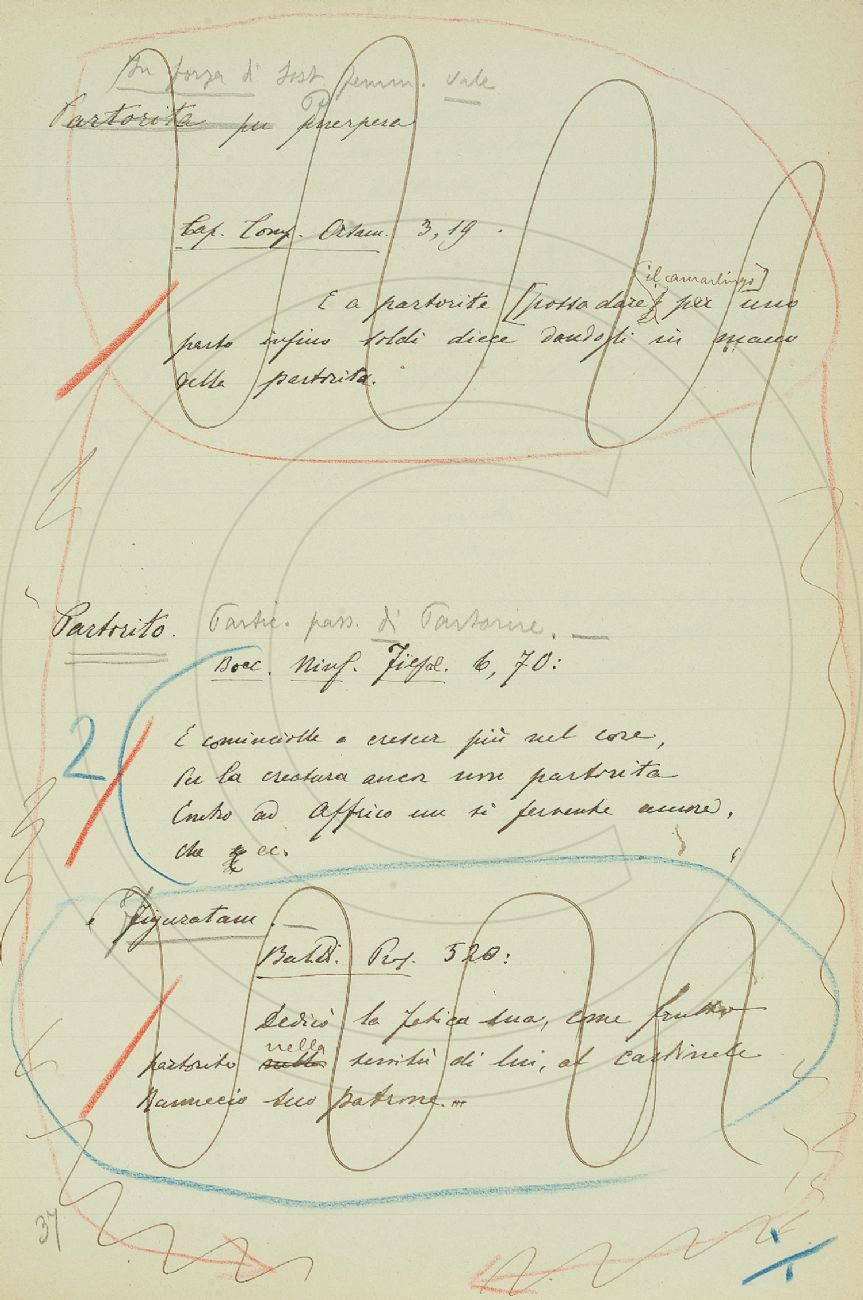 In forza di Sost. femm. vale
Partorita per Puerpera
Cap. Comp. Orsam. 3, 19.
[il camarlingo]
E a partorite [possa dare] per uno
parto infino soldi diece dandogli in mano
della partorita.
Partorito. Partic. pass. di Partorire. —
Bocc. Ninf. Fiesol. 6, 70:
2
E cominciolle a crescer più nel core,
Per la creatura ancor non partorita
Entro ad Affrico un sì fervente amore,
che ec.
e Figuratam. —
Baldi. Pros. 520:
Dedicò la fatica sua, come frutto
nella
partorito nella servitù di lui, al cardinale
Rannuccio suo patrone...
37